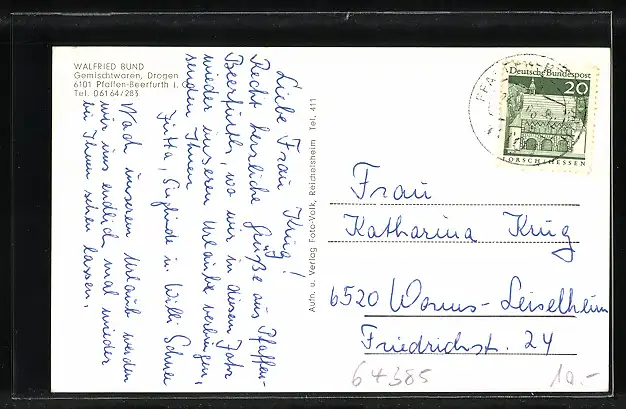 WALFRIED BUND
Gemischtwaren, Drogen
6101 Pfaffen-Beerfurth i.
Tel. 06164/283
Liebe Frau Krug!
Recht herzliche Grüße aus Pfaffen-
Beerfurth, wo wir in diesem Jahr
wieder unseren Urlaub verbringen,
senden Ihnen
Jutta, Sieglinde u. Willi
Nach unserem Urlaub werden
wir uns endlich mal wieder
bei Ihnen sehen lassen.
Aufn. u. Verlag Foto-Volk, Reichelsheim Tel. 411
Deutsche Bundespost
20
LORSCH/HESSEN
Frau
Katharina Krug
6520 Worms-Leiselheim
Friedrichst. 24
64385
10.-